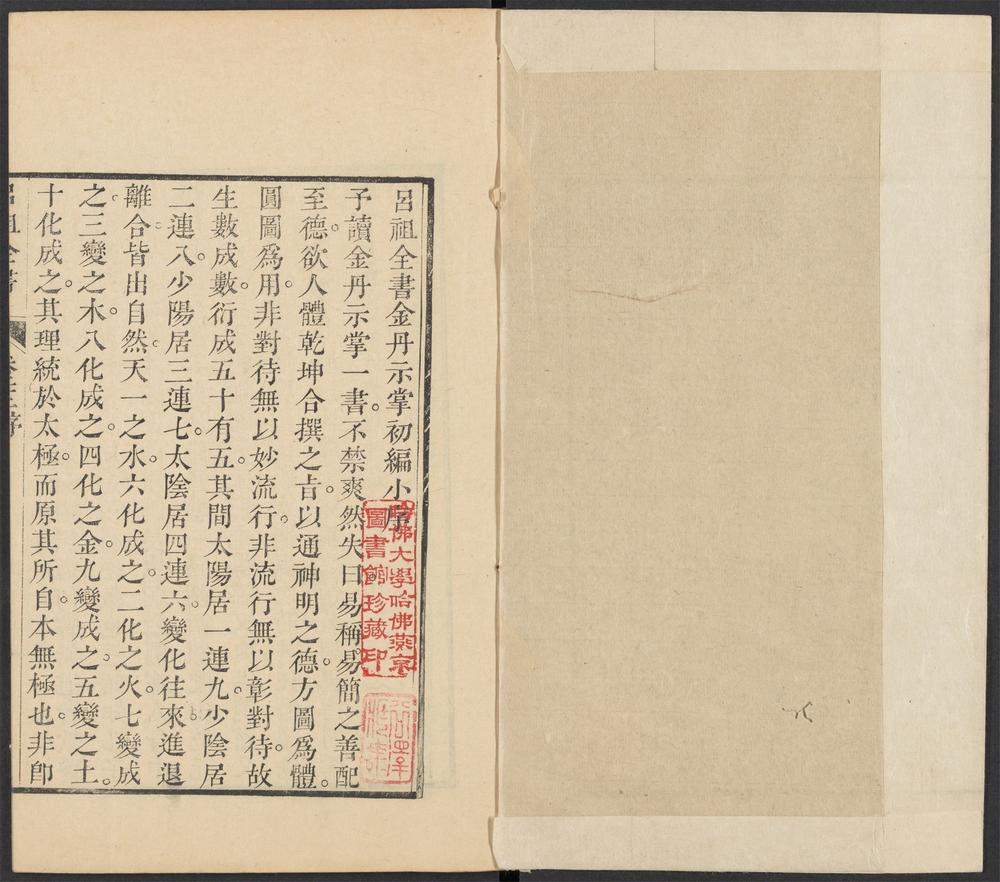 呂祖全書金丹示掌初編小序
予讀金丹示掌一書。不禁爽然失曰易稱易簡之善配
至德。欲人體乾坤合撰之旨。以通神明之德。方圖爲體。
圓圖爲用。非對待無以妙流行。非流行無以彰對待。故
生數成數。衍成五十有五。其間太陽居一連九。少陰居
二連八。少陽居三連七。太陰居四連六。變化往來。進退
離合。皆出自然。天一之水。六化成之。二化之火。七變成
之。三變之木。八化成之。四化之金。九變成之。五變之土。
十化成之。其理統於太極。而原其所自。本無極也。非卽
呂祖全書 卷三序
哈佛大學哈佛燕京
圖書館珍藏印